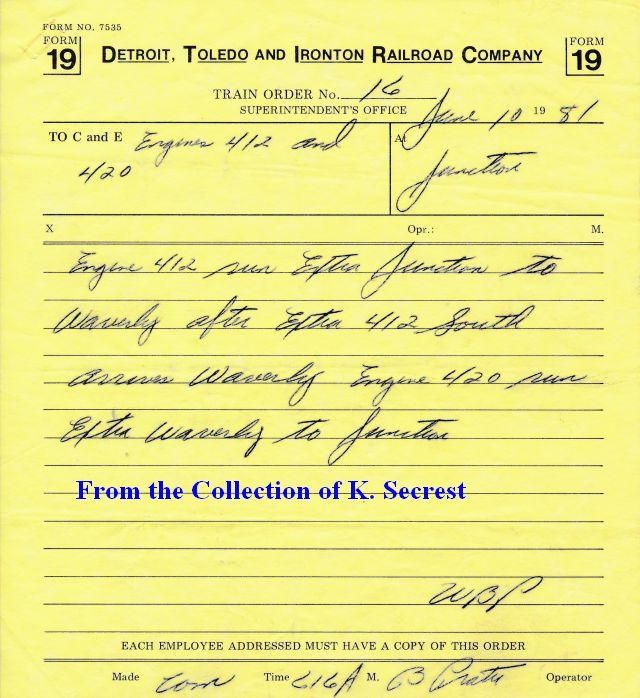 FORM NO. 7535
FORM 19 DETROIT, TOLEDO AND IRONTON RAILROAD COMPANY FORM 19
TRAIN ORDER No. 16
SUPERINTENDENT'S OFFICE June 10 19 81
TO C and E Engines 412 and At
420 Junction
X Opr.: M.
Engine 412 run Extra Junction to
Waverly after Extra 412 South
arrives Waverly Engine 420 run
Extra Waverly to Junction
From the Collection of K. Secrest
WBP
EACH EMPLOYEE ADDRESSED MUST HAVE A COPY OF THIS ORDER
Made Com Time 616A M. B Operator